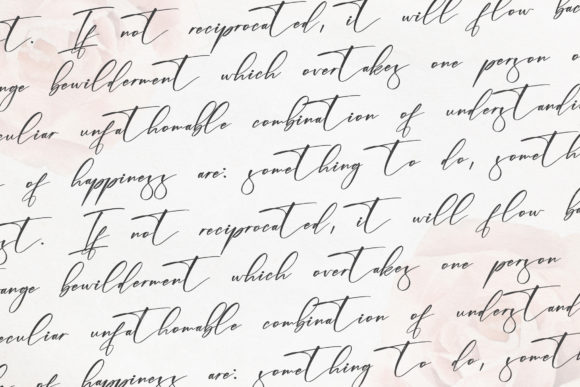 st. If not reciprocated, it will flow bac
ange bewilderment which overtakes one person o
culiar unfathomable combination of understandi
of happiness are: something to do, someth
st. If not reciprocated, it will flow ba
ange bewilderment which overtakes one person
eculiar unfathomable combination of understand
of happiness are: something to do, somet